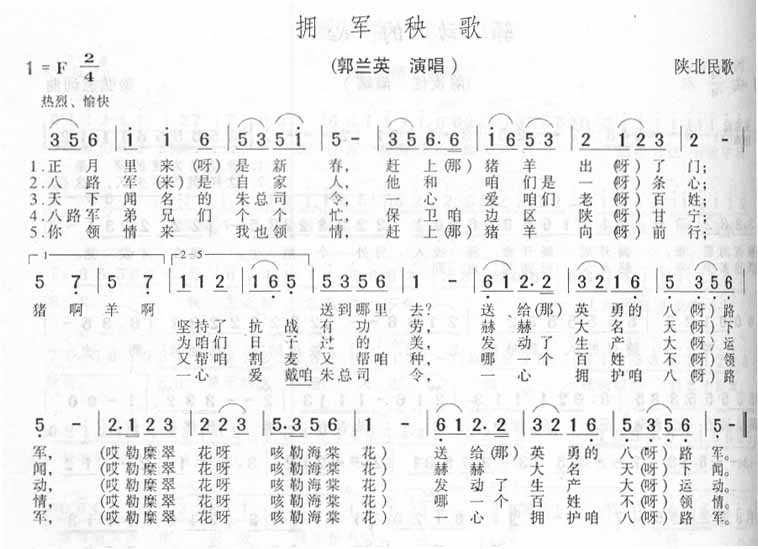 拥军秧歌
1=F 2/4
(郭兰英 演唱)
陕北民歌
热烈、愉快
3 5 6 | i i | i 6 | 5 3 5 1 | 5 - | 3 5 6·6 | i 6 5 3 | 2 1 2 3 | 2 - |
1.正月里来(呀)是新春,赶上(那)猪羊出(呀)了门;
2.八路军(来)是自家人,他和咱们是一(呀)条心;
3.天下闻名的朱总司令,一心爱咱们老(呀)百姓;
4.八路军弟兄们个个忙,保卫咱边区陕(呀)甘宁;
5.你领情来我也领情,赶上(那)猪羊向(呀)前行;
1 2-5
5 7 | 5 7 | 1 1 2 | 1 6 5 | 5 3 5 3 | 1 - | 6 1 2·2 | 3 2 1 6 | 5 3 5 6 |
猪啊羊啊 送到哪里去?送给(那)英勇的八(呀)路
坚持了抗战有功劳,赫赫大名天(呀)下
为咱们日子过的美,发动了生产大(呀)运
又帮咱割麦又帮咱种,哪一个百姓不(呀)领
一心爱戴咱朱总司令,一心拥护咱八(呀)路
5 - | 2·1 2 3 | 2 2 3 | 5·3 5 6 | 1 - | 6 1 2·2 | 3 2 1 6 | 5 3 5 6 | 5 - ‖
军,(哎勒糜翠花呀咳勒海棠花)送给(那)英勇的八(呀)路军。
闻,(哎勒糜翠花呀咳勒海棠花)赫赫大名天(呀)下闻。
动,(哎勒糜翠花呀咳勒海棠花)发动了生产大(呀)运动。
情,(哎勒糜翠花呀咳勒海棠花)哪一个百姓不(呀)领情。
军,(哎勒糜翠花呀咳勒海棠花)一心拥护咱八(呀)路军。